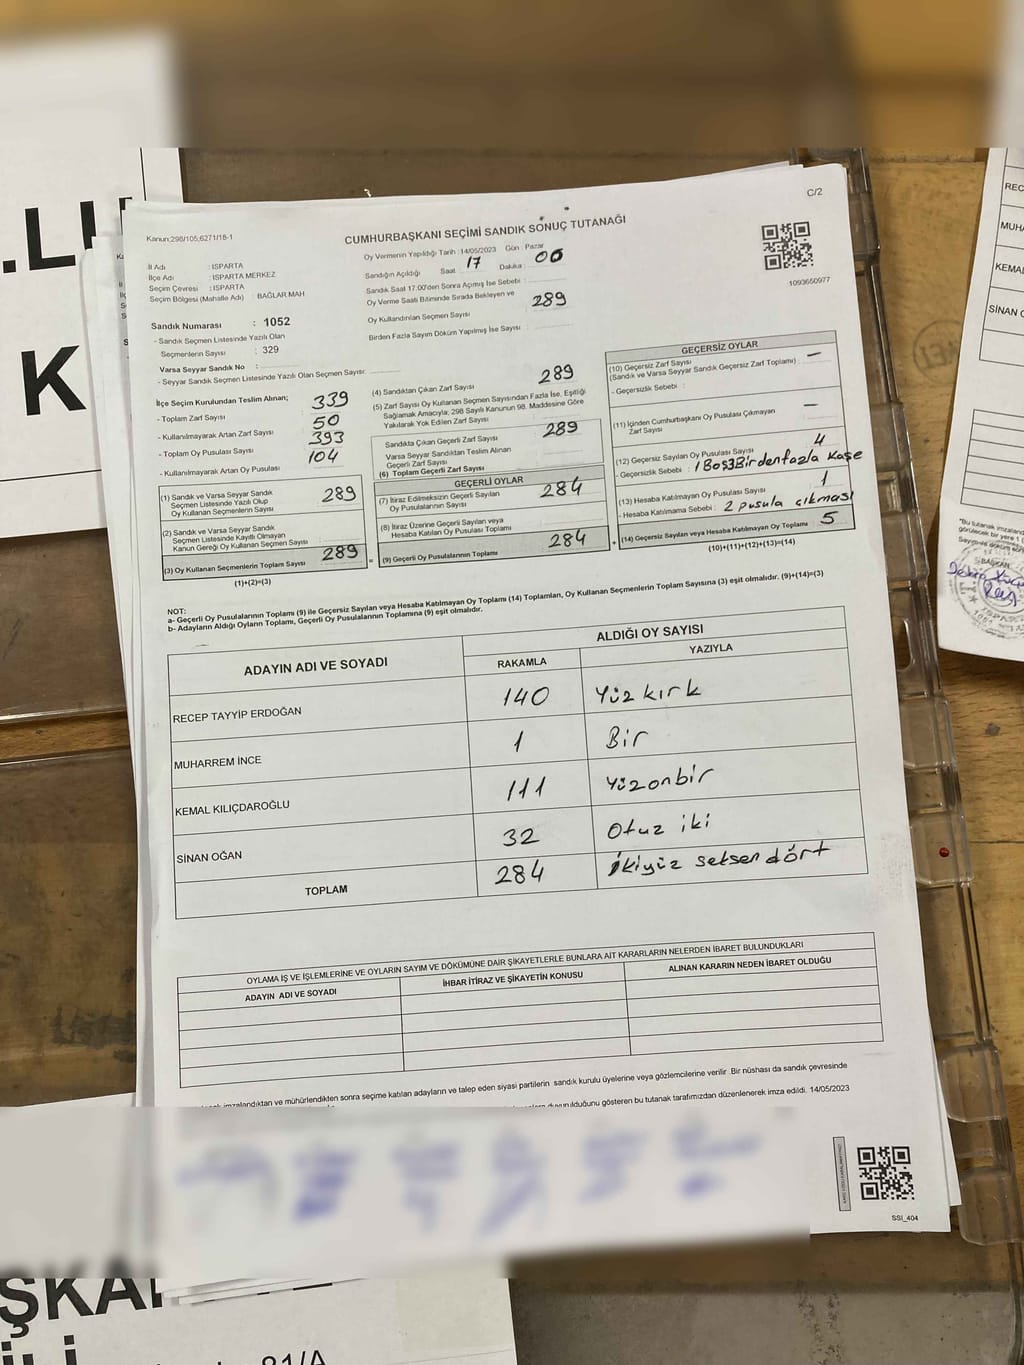 C/2
Kanun;298/105;6271/18-1
CUMHURBAŞKANI SEÇİMİ SANDIK SONUÇ TUTANAĞI
İl Adı : ISPARTA
İlçe Adı : ISPARTA MERKEZ
Seçim Çevresi : ISPARTA
Seçim Bölgesi (Mahalle Adı) : BAĞLAR MAH
Sandık Numarası : 1052
- Sandık Seçmen Listesinde Yazılı Olan
Seçmenlerin Sayısı : 329
Varsa Seyyar Sandık No :
- Seyyar Sandık Seçmen Listesinde Yazılı Olan Seçmen Sayısı:
Oy Vermenin Yapıldığı Tarih :14/05/2023 Gün : Pazar
Sandığın Açıldığı Saat : 17 Dakika : 00
Sandık Saat 17:00'den Sonra Açımış İse Sebebi :
Oy Verme Saati Bitiminde Sırada Bekleyen ve
Oy Kullandırılan Seçmen Sayısı 289
Birden Fazla Sayım Döküm Yapılmış İse Sayısı :
1093650977
İlçe Seçim Kurulundan Teslim Alınan;
- Toplam Zarf Sayısı 339
- Kullanılmayarak Artan Zarf Sayısı 50
- Toplam Oy Pusulası Sayısı 393
- Kullanılmayarak Artan Oy Pusulası 104
(1) Sandık ve Varsa Seyyar Sandık
Seçmen Listesinde Yazılı Olup
Oy Kullanan Seçmenlerin Sayısı 289
(2) Sandık ve Varsa Seyyar Sandık
Seçmen Listesinde Kayıtlı Olmayan
Kanun Gereği Oy Kullanan Seçmen Sayısı
(3) Oy Kullanan Seçmenlerin Toplam Sayısı 289
(1)+(2)=(3)
(4) Sandıktan Çıkan Zarf Sayısı 289
(5) Zarf Sayısı Oy Kullanan Seçmen Sayısından Fazla İse, Eşitliği
Sağlamak Amacıyla; 298 Sayılı Kanunun 98. Maddesine Göre
Yakılarak Yok Edilen Zarf Sayısı
Sandıkta Çıkan Geçerli Zarf Sayısı 289
Varsa Seyyar Sandıktan Teslim Alınan
Geçerli Zarf Sayısı
(6) Toplam Geçerli Zarf Sayısı
GEÇERLİ OYLAR
(7) İtiraz Edilmeksizin Geçerli Sayılan
Oy Pusulalarının Sayısı 284
(8) İtiraz Üzerine Geçerli Sayılan veya
Hesaba Katılan Oy Pusulası Toplamı
(9) Geçerli Oy Pusulalarının Toplamı 284
GEÇERSİZ OYLAR
(10) Geçersiz Zarf Sayısı
(Sandık ve Varsa Seyyar Sandık Geçersiz Zarf Toplamı) : —
- Geçersizlik Sebebi :
(11) İçinden Cumhurbaşkanı Oy Pusulası Çıkmayan
Zarf Sayısı —
(12) Geçersiz Sayılan Oy Pusulası Sayısı 4
- Geçersizlik Sebebi : 1 Boş 3 Birden fazla Kaşe
(13) Hesaba Katılmayan Oy Pusulası Sayısı 1
- Hesaba Katılmama Sebebi : 2 pusula çıkması
(14) Geçersiz Sayılan veya Hesaba Katılmayan Oy Toplamı 5
(10)+(11)+(12)+(13)=(14)
NOT:
a- Geçerli Oy Pusulalarının Toplamı (9) ile Geçersiz Sayılan veya Hesaba Katılmayan Oy Toplamı (14) Toplamları, Oy Kullanan Seçmenlerin Toplam Sayısına (3) eşit olmalıdır. (9)+(14)=(3)
b- Adayların Aldığı Oyların Toplamı, Geçerli Oy Pusulalarının Toplamına (9) eşit olmalıdır.
ADAYIN ADI VE SOYADI ALDIĞI OY SAYISI
RAKAMLA YAZIYLA
RECEP TAYYİP ERDOĞAN 140 Yüz kırk
MUHARREM İNCE 1 Bir
KEMAL KILIÇDAROĞLU 111 Yüzonbir
SİNAN OĞAN 32 Otuz iki
TOPLAM 284 İkiyüz seksen dört
OYLAMA İŞ VE İŞLEMLERİNE VE OYLARIN SAYIM VE DÖKÜMÜNE DAİR ŞİKAYETLERLE BUNLARA AİT KARARLARIN NELERDEN İBARET BULUNDUKLARI
ADAYIN ADI VE SOYADI İHBAR İTİRAZ VE ŞİKAYETİN KONUSU ALINAN KARARIN NEDEN İBARET OLDUĞU
imzalandıktan ve mühürlendikten sonra seçime katılan adayların ve talep eden siyasi partilerin sandık kurulu üyelerine veya gözlemcilerine verilir .Bir nüshası da sandık çevresinde
duyurulduğunu gösteren bu tutanak tarafımızdan düzenlenerek imza edildi. 14/05/2023
SSI_404
.LI
K
ŞKA
REC
MUHA
KEMAL
SİNAN O
BAŞKAN
81/A